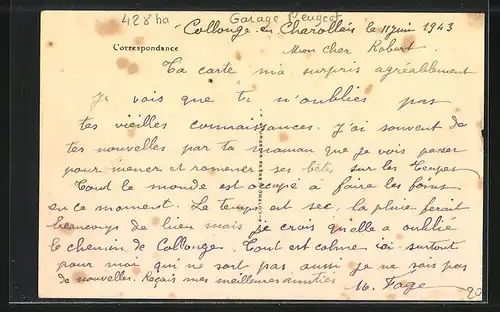 428 ha Garage Peugeot
Collonge en Charollais le 11 juin 1943
Correspondance
Mon cher Robert.
Ta carte m'a surpris agréablement
Je vois que tu n'oublies pas
tes vieilles connaissances. J'ai souvent de
tes nouvelles par ta maman que je vois passer
pour mener et ramener ses bêtes sur les
Tout le monde est occupé a faire les foins
en ce moment. Le temps est sec, la pluie ferait
beaucoups de bien mais je crois qu'elle a oublié
le chemin de Collonge. Tout est calme ici surtout
pour moi qui ne sort pas aussi je ne sais pas
de nouvelles. Reçois mes meilleures amitiés
M. Fage
20